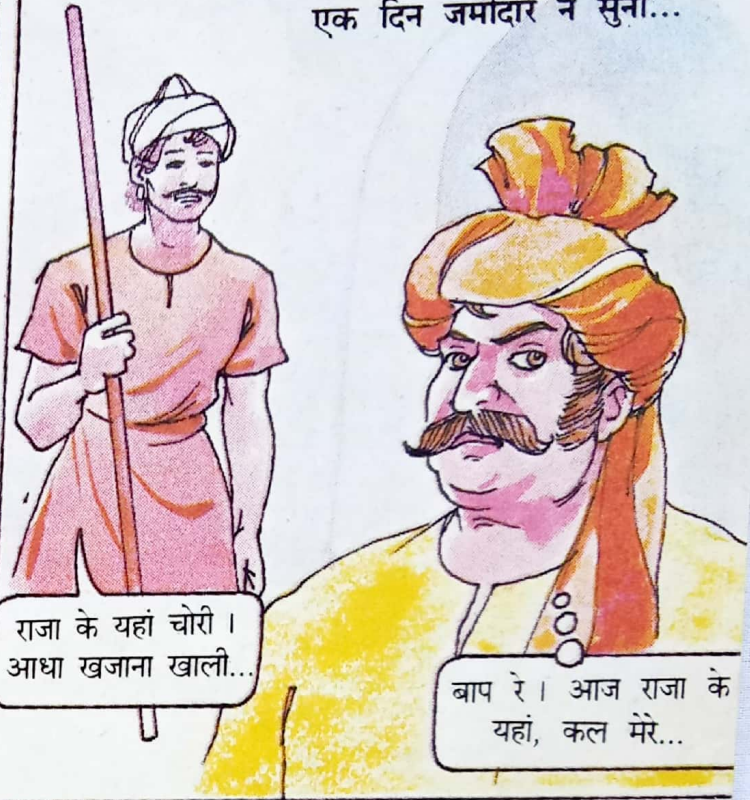 एक दिन जमींदार ने सुना...
राजा के यहां चोरी।
आधा खजाना खाली...
बाप रे। आज राजा के
यहां, कल मेरे...